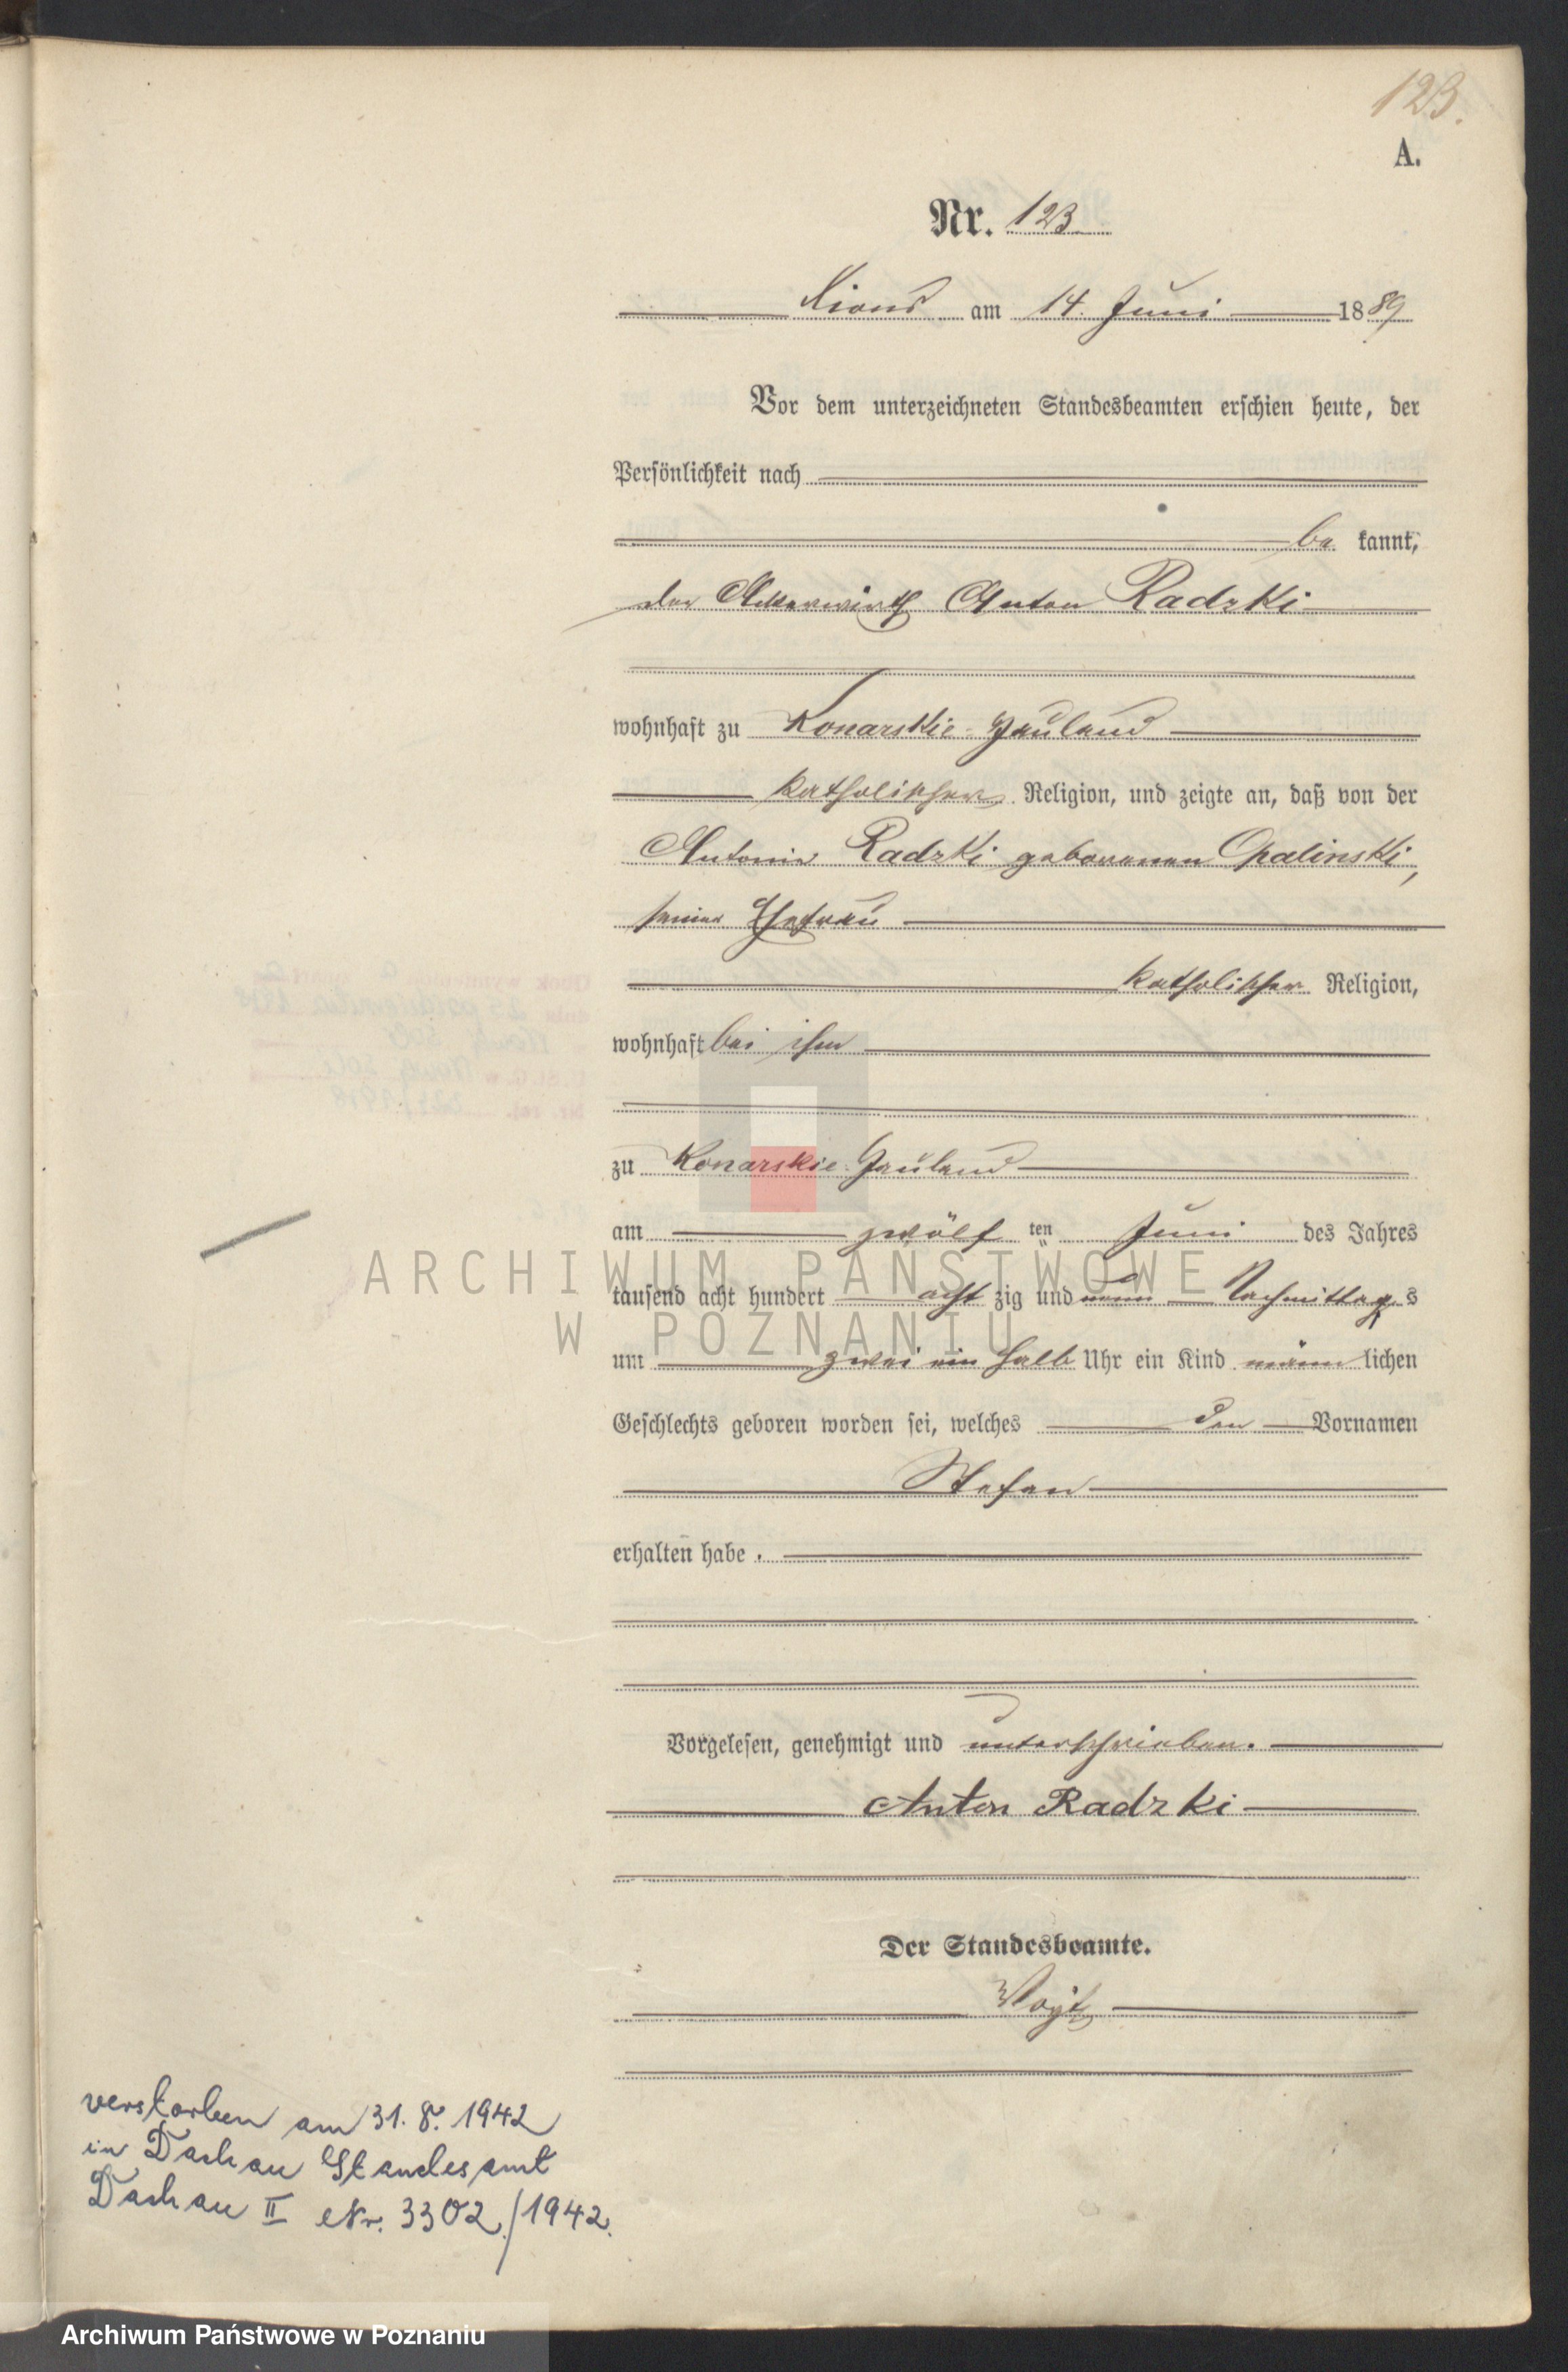 123.
A.
Nr. 123
Xions am 14. Juni 1889
Vor dem unterzeichneten Standesbeamten erschien heute, der
Persönlichkeit nach
be kannt,
der Ackerwirth Anton Radzki
wohnhaft zu Konarskie Hauland
katholischer Religion, und zeigte an, daß von der
Antonie Radzki geborenen Opalinski,
seiner Ehefrau
katholischer Religion,
wohnhaft bei ihm
zu Konarskie Hauland
am zwölf ten Juni des Jahres
tausend acht hundert acht zig und neun Nachmittags
um zwei ein halb Uhr ein Kind männ lichen
Geschlechts geboren worden sei, welches den Vornamen
Stefan
erhalten habe.
Vorgelesen, genehmigt und unterschrieben.
Anton Radzki
Der Standesbeamte.
Vogt
verstorben am 31. 8. 1942
in Dachau Standesamt
Dachau II Nr. 3302/1942.
ARCHIWUM PAŃSTWOWE
W POZNANIU
Archiwum Państwowe w Poznaniu